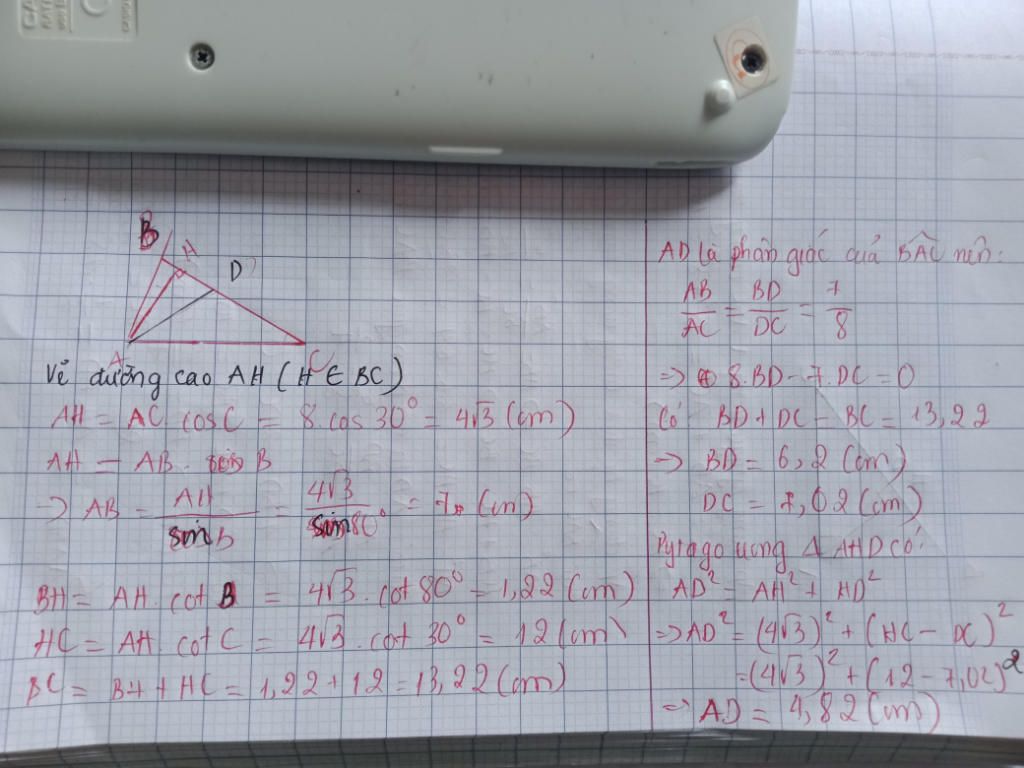 B
H
D
A
C
Vẽ đường cao AH (H ∈ BC)
AH = AC. cosC = 8. cos 30° = 4√3 (cm)
AH = AB. sin B
=> AB = AH/sin B = 4√3/sin 80° = 7 (cm)
BH = AH. cot B = 4√3. cot 80° = 1,22 (cm)
HC = AH. cot C = 4√3. cot 30° = 12 (cm)
BC = BH + HC = 1,22 + 12 = 13,22 (cm)
AD là phân giác quá BÂC nên:
AB/AC = BD/DC = 7/8
=> 8. BD - 7. DC = 0
Có BD + DC = BC = 13,22
=> BD = 6,2 (cm)
DC = 7,02 (cm)
Pytago Δ AHD có:
AD² = AH² + HD²
=> AD² = (4√3)² + (HC - DC)²
= (4√3)² + (12 - 7,02)²
=> AD = 4,82 (cm)